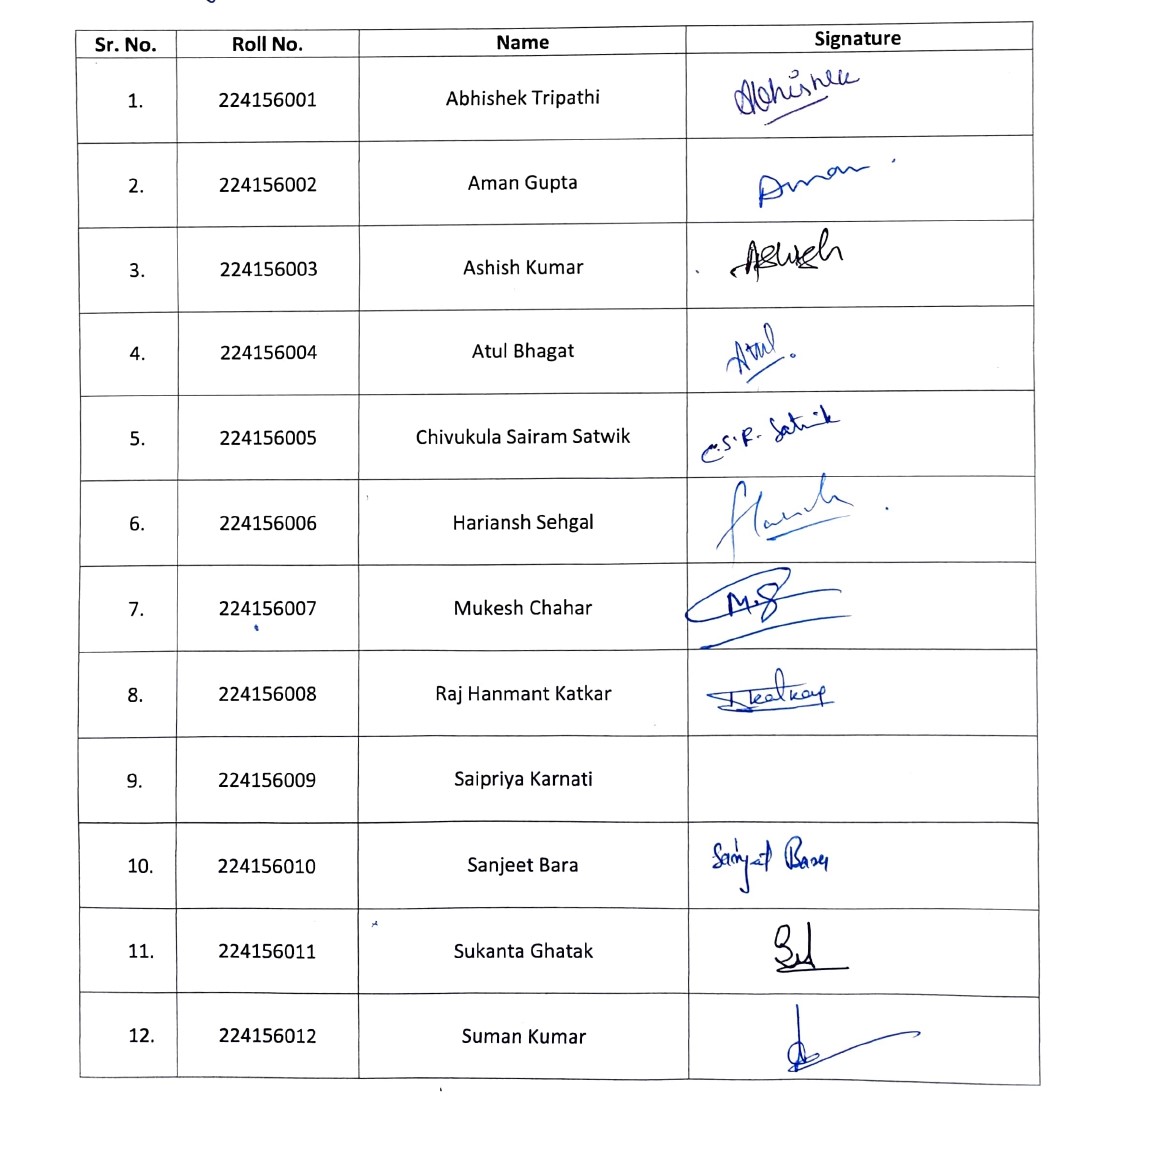 Sr. No. Roll No. Name Signature
1. 224156001 Abhishek Tripathi Abhishek
2. 224156002 Aman Gupta Aman
3. 224156003 Ashish Kumar Ashish
4. 224156004 Atul Bhagat Atul.
5. 224156005 Chivukula Sairam Satwik C.S.R. Satwik
6. 224156006 Hariansh Sehgal
7. 224156007 Mukesh Chahar
8. 224156008 Raj Hanmant Katkar
9. 224156009 Saipriya Karnati
10. 224156010 Sanjeet Bara Sanjeet Bara
11. 224156011 Sukanta Ghatak
12. 224156012 Suman Kumar